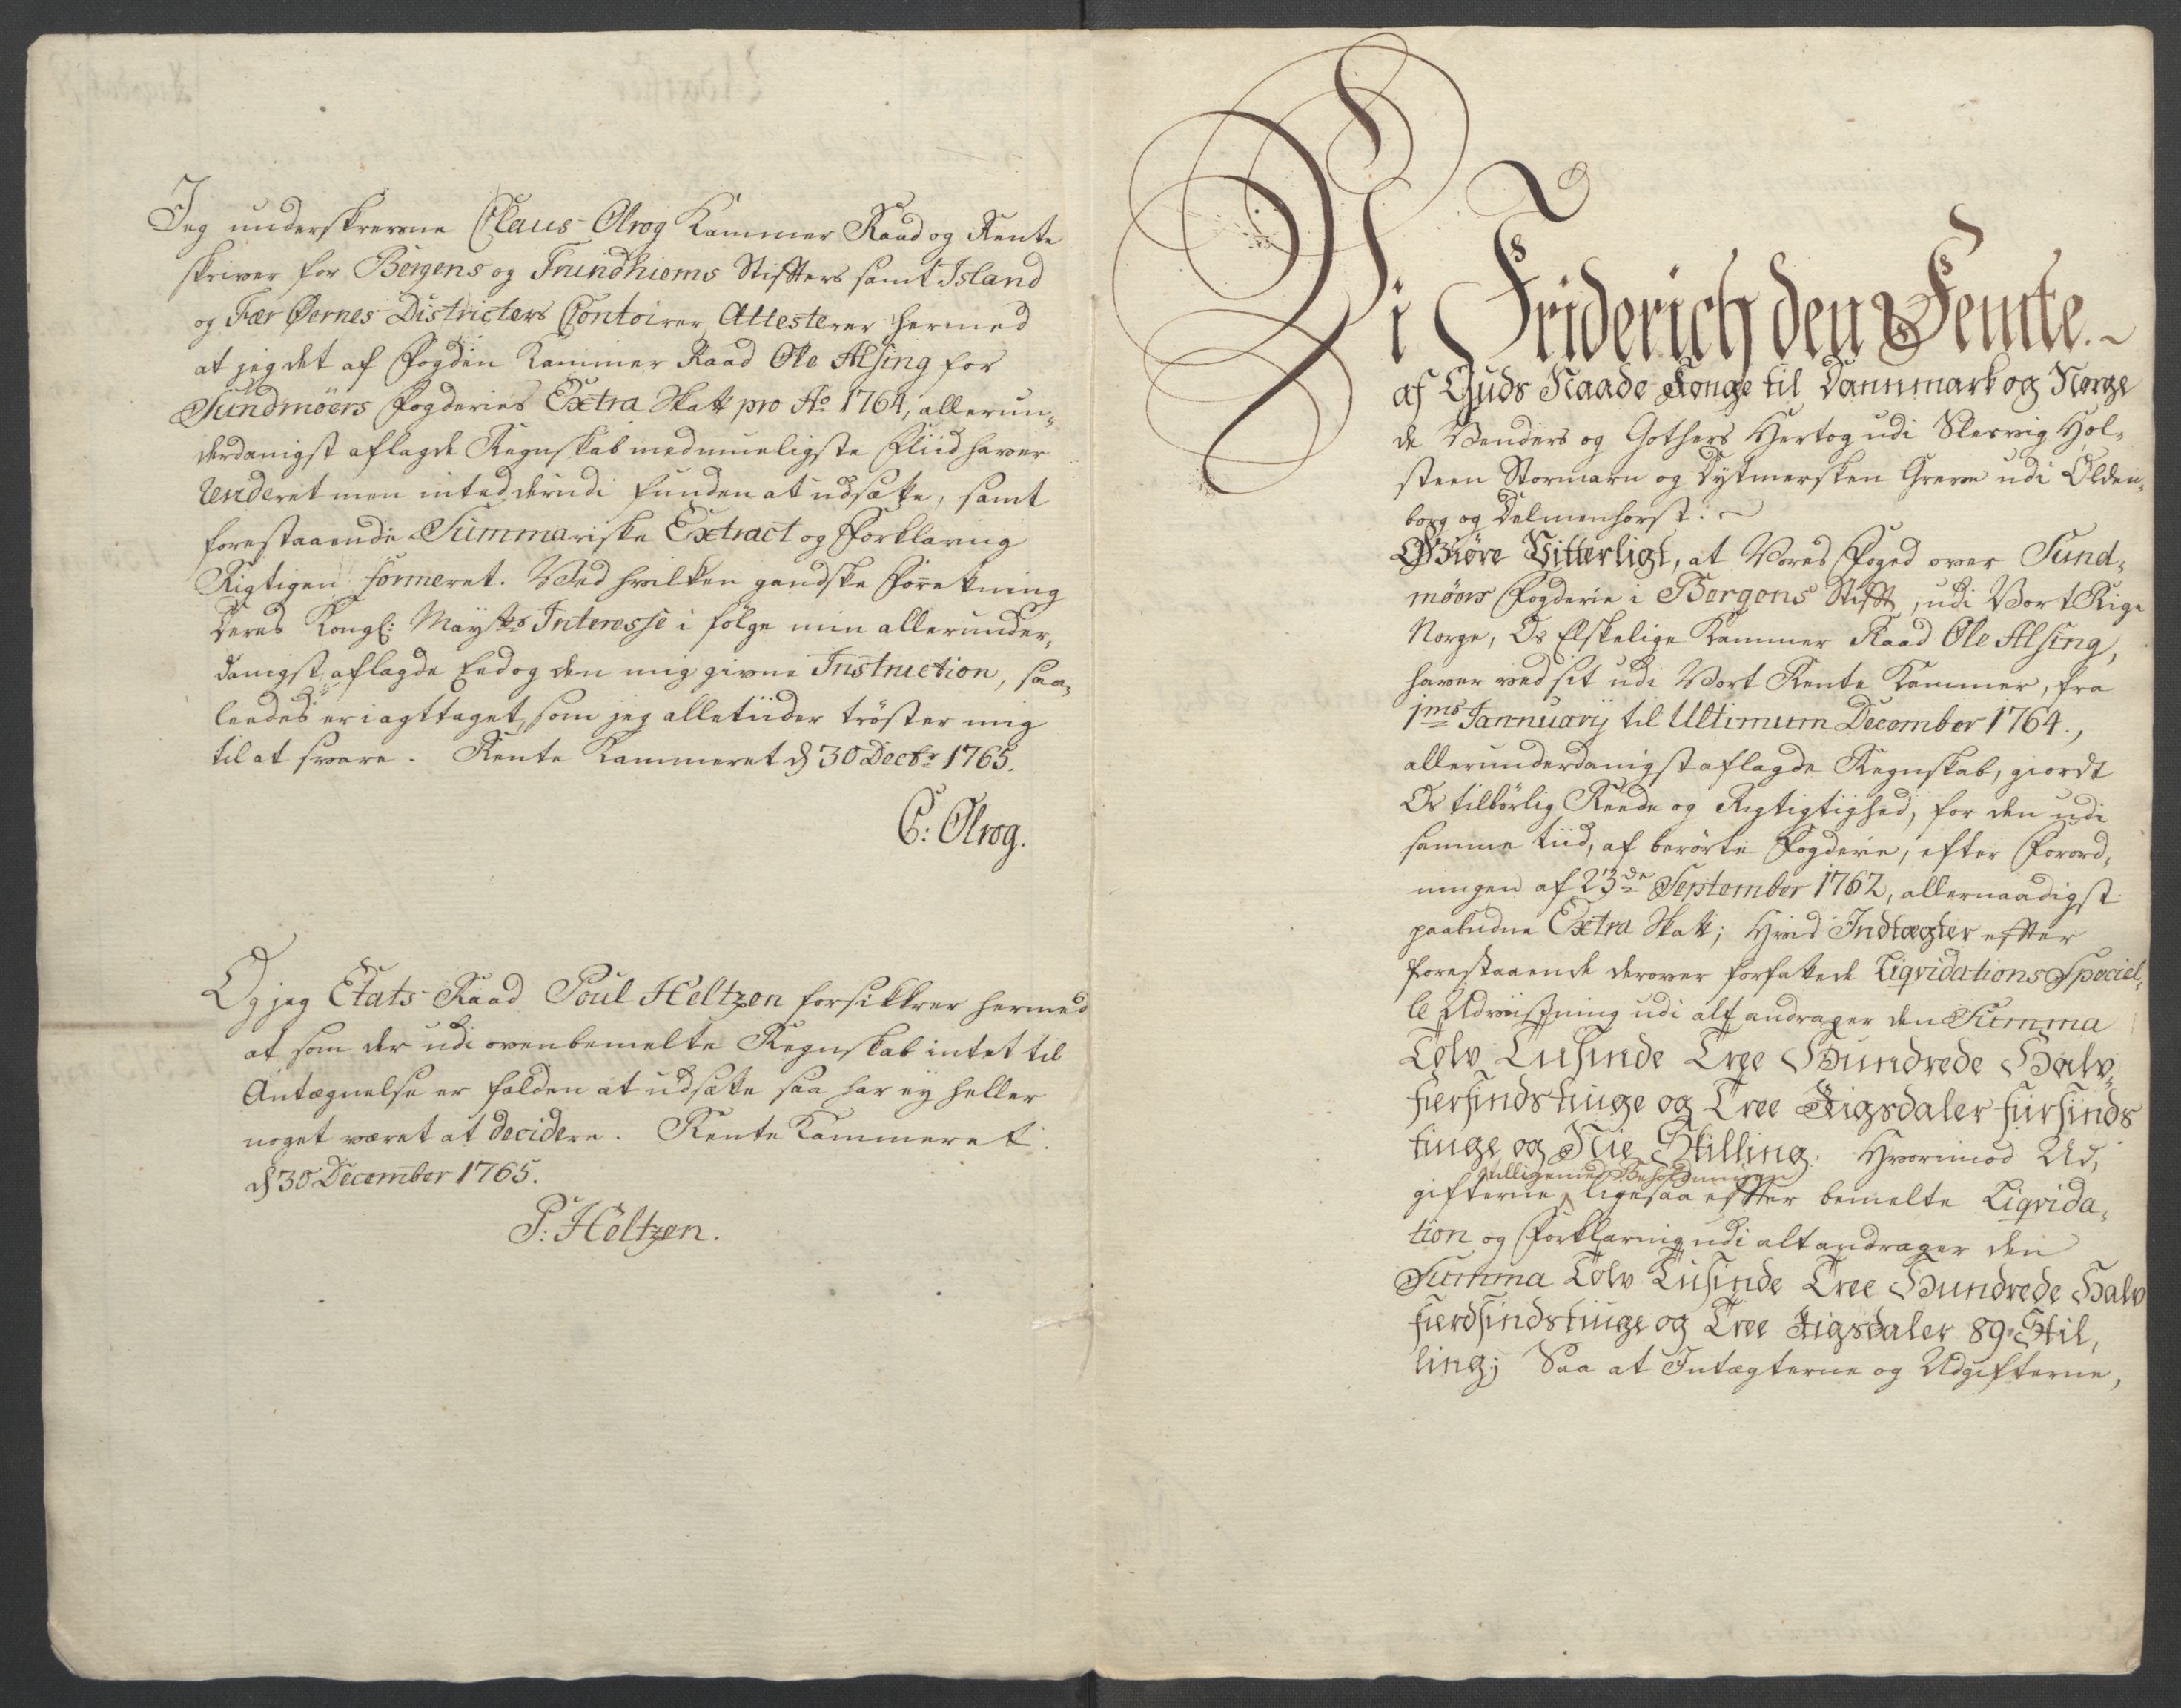 Jeg underskrevne Claus Olrog Kammer Raad og Rente
skriver for Bergens og Trundhiems Stifters samt Island
og Fær Øernes Districters Contoirer Attesterer hermed
at jeg det af Fogden Kammer Raad Ole Alsing for
Sundmöers Fogderies Extra Skatt pro Ao 1764, allerun,,
derdanigst aflagde Regnskab med mueligste Fliid haver
reviderit men intet derudi funden at udsætte, samt
forestaaende Summariske Extract og Forklaring
Rigtigen formeret. Ved hvilken gandske Forretning
Deres Kongl: Maysts Interesse i fölge min allerunder,,
danigst aflagde Eed og den mig givne Instruction, saa,,
leedes er i agttaget, som jeg alletiider tröster mig
til at svare. Rente Kammeret d 30 Decbr 1765.
C: Olrog.
Og jeg Etats Raad Poul Heltzen forsikkrer hermed
at som der udi ovenbemelte Regnskab intet til
Antægnelse er falden at udsætte saa har ey heller
noget været at decidere. Rente Kammeret
d 30 December 1765.
P: Heltzen.
Vi Friderich den Femte.
af Guds Naade Konge til Dannmark og Norge
de Venders og Gothers Hertog udi Slesvig Hol,,
steen Stormarn og Dytmersken Greve udi Olden,,
borg og Delmenhorst.
Giöre Vitterligt, at Vores Foged over Sund,,
möers Fogderie i Bergens Stift, udi Vort Rige
Norge, Os Elskelige Kammer Raad Ole Alsing,
haver ved sit udi Vort Rente Kammer, fra
1ms Jannuarij til Ultimum December 1764.,
allerunderdanigst aflagde Regnskab, giordt
Os tilbörlig Reede og Rigtigtighed, for den udi
samme tiid, af berörte Fogderie, efter Forord,,
ningen af 23de September 1762, allernaadigst
paabudne Extra Skatt; Hvis Indtægter efter
forestaaende derover forfattede Liqvidations Speciel,,
le Udviisning udi alt andrager den Summa
Tolv Tusinde Tree Hundrede Halv,,
fiersindstiuge og Tree Rigsdaler fiirsinds
tiuge og Nie Skilling. Hvorimod Ud,,
tilligemed Beholdningen
gifterne ligesaa efter bemelte Liqvida,,
tion og Forklaring udi alt andrager den
Summa Tolv Tusinde Tree Hundrede Halv
fierdsindstiuge og Tree Rigsdaler 89 Skil,,
ling; Saa at Intægterne og Udgifterne,